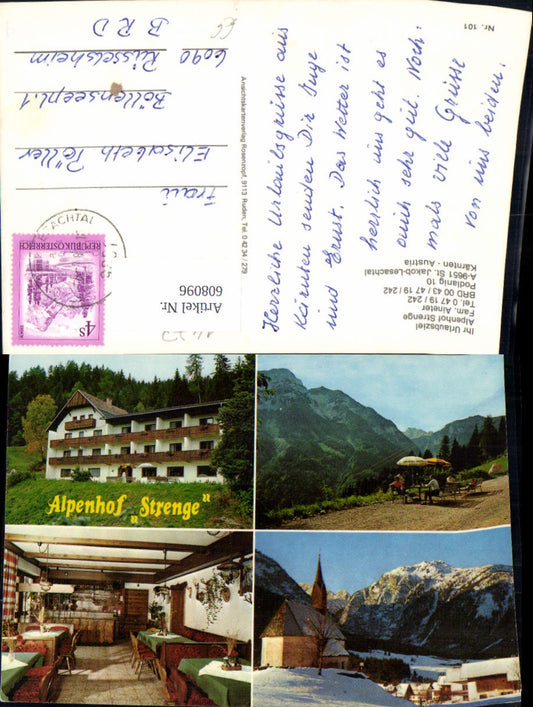 Nr. 101
Herzliche Urlaubsgrüsse aus
Kärnten senden Dir Inge
und Ernst. Das Wetter ist
herrlich uns geht es
auch sehr gut. Noch-
mals viele Grüsse
von uns beiden.
Ihr Urlaubsziel
Alpenhof Strenge
Fam. Aineter
Tel. 0 47 19 / 242
BRD 00 43 47 19 / 242
Podlanig 10
A-9651 St. Jakob-Lesachtal
Kärnten - Austria
Ansichtskartenverlag Rosenzopf, 9113 Ruden, Tel. 0 42 34 / 279
REPUBLIK ÖSTERREICH
4 S
SACHTAL
Frau
Elisabeth
Böllenseepl. 1
6090 Rüsselsheim
BRD
Artikel Nr.
608096
Alpenhof „Strenge"